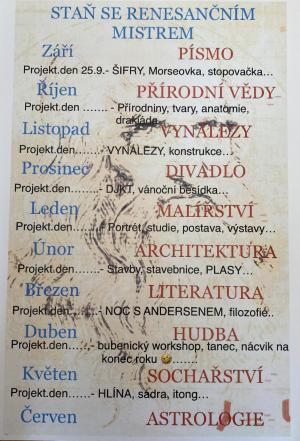 STAŇ SE RENESANČNÍM
MISTREM
Září PÍSMO
Projekt.den 25.9.- ŠIFRY, Morseovka, stopovačka...
Říjen PŘÍRODNÍ VĚDY
Projekt.den ....... - Přírodniny, tvary, anatomie,
drakiáda
Listopad VYNÁLEZY
Projekt.den.......- VYNÁLEZY, konstrukce...
Prosinec DIVADLO
Projekt.den........- DJKT, vánoční besídka...
Leden MALÍŘSTVÍ
Projekt.den.......- Portrét, studie, postava, výstavy...
Únor ARCHITEKTURA
Projekt.den.......- Stavby, stavebnice, PLASY...
Březen LITERATURA
Projekt.den.......- NOC S ANDERSENEM, filozofié..
Duben HUDBA
Projekt.den......- bubenický workshop, tanec, nácvik na
konec roku 🤣.......
Květen SOCHAŘSTVÍ
Projekt.den......- HLÍNA, sádra, itong...
Červen ASTROLOGIE